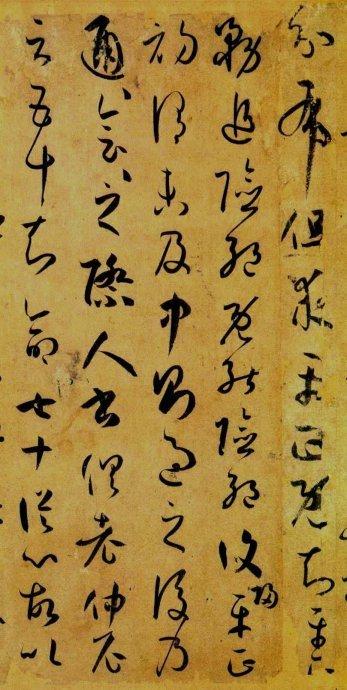 分布但求平正既知平正
務追險絕既能險絕復歸平正
初謂未及中則過之後乃
通會之際人書俱老仲尼
云五十知命七十從心故以